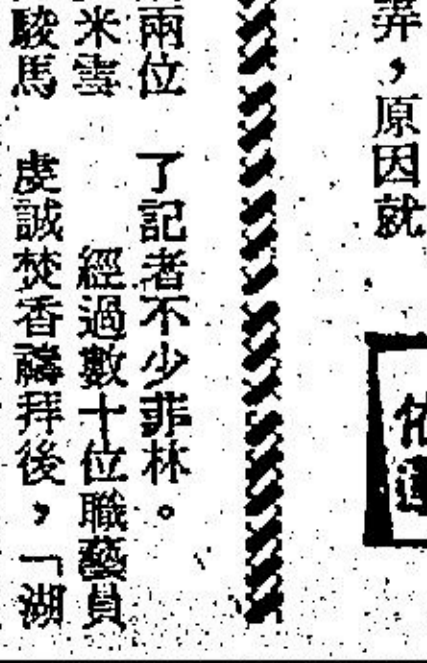 弄，原因就
兩位
米雪
駿馬
了記者不少菲林。
經過數十位職藝員
虔誠焚香禱拜後，「湖